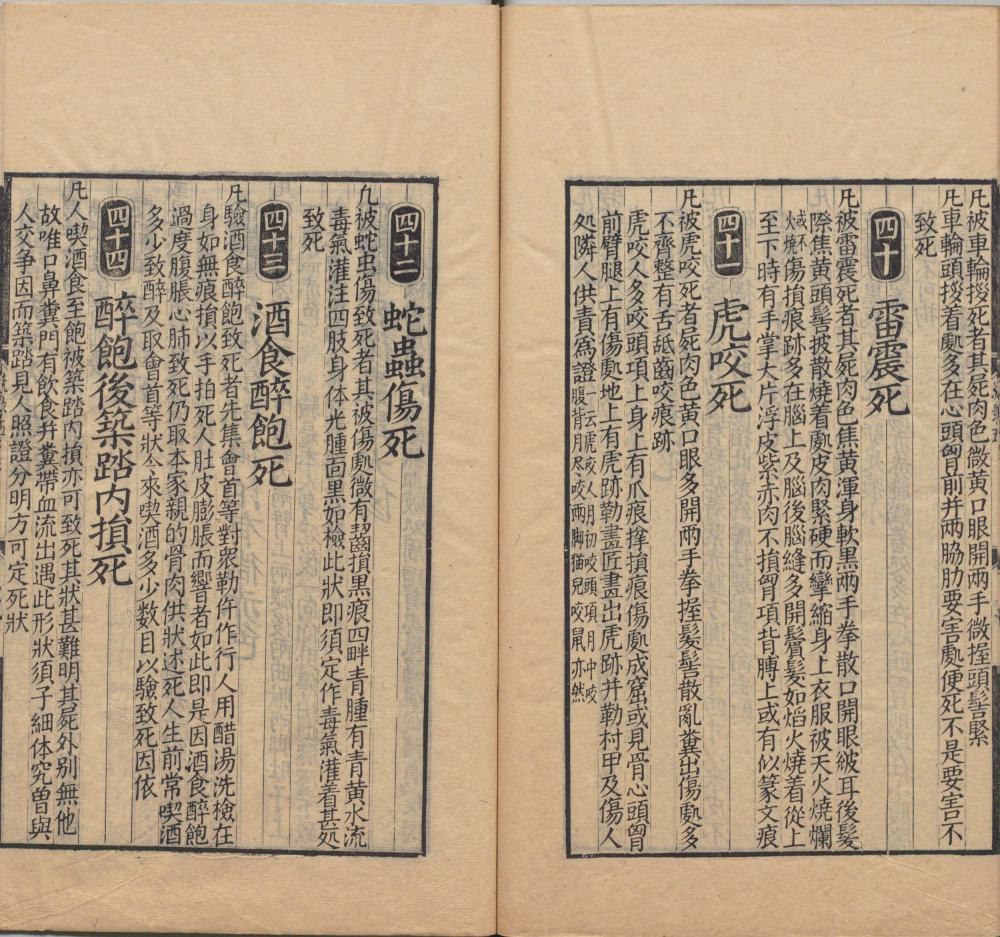 凡被車輪拶死者其屍肉色微黄口眼開兩手微握頭髻緊
凡車輪頭拶着處多在心頭胷前并兩脇肋要害處便死不是要害不
致死
四十 雷震死
凡被雷震死者其屍肉色焦黄渾身軟黑兩手拳散口開眼㿱耳後髮
際焦黄頭髻披散燒着處皮肉緊硬而攣縮身上衣服被天火燒爛
或不火燒傷損痕跡多在腦上及腦後腦縫多開鬢髮如熖火燒着從上
至下時有手掌大片浮皮紫赤肉不損胷項背膊上或有似篆文痕
四十一 虎咬死
凡被虎咬死者屍肉色黄口眼多開兩手拳握髮髻散亂糞出傷處多
不齊整有舌舐齒咬痕跡
虎咬人多咬頭項上身上有爪痕掰損痕傷處成窟或見骨心頭胷
前臂腿上有傷處地上有虎跡勒畫匠畫出虎跡并勒村甲及傷人
処隣人供責爲證一云虎咬人月初咬頭項月中咬腹背月尽咬兩脚猫兒咬鼠亦然
四十二 蛇蟲傷死
凡被蛇虫傷致死者其被傷處微有齧損黒痕四畔青腫有青黄水流
毒氣灌注四肢身体光腫面黒如檢此状即須定作毒氣灌着甚処
致死
四十三 酒食醉飽死
凡驗酒食醉飽致死者先集會首等對衆勒仵作行人用醋湯洗檢在
身如無痕損以手拍死人肚皮膨脹而響者如此即是因酒食醉飽
過度腹脹心肺致死仍取本家親的骨肉供状述死人生前常喫酒
多少致醉及取會首等状今來喫酒多少数目以驗致死因依
四十四 醉飽後築踏内損死
凡人喫酒食至飽被築踏内損亦可致死其状甚難明其屍外别無他
故唯口鼻糞門有飲食并糞帶血流出遇此形状須子細体究曽與
人交争因而築踏見人照證分明方可定死状